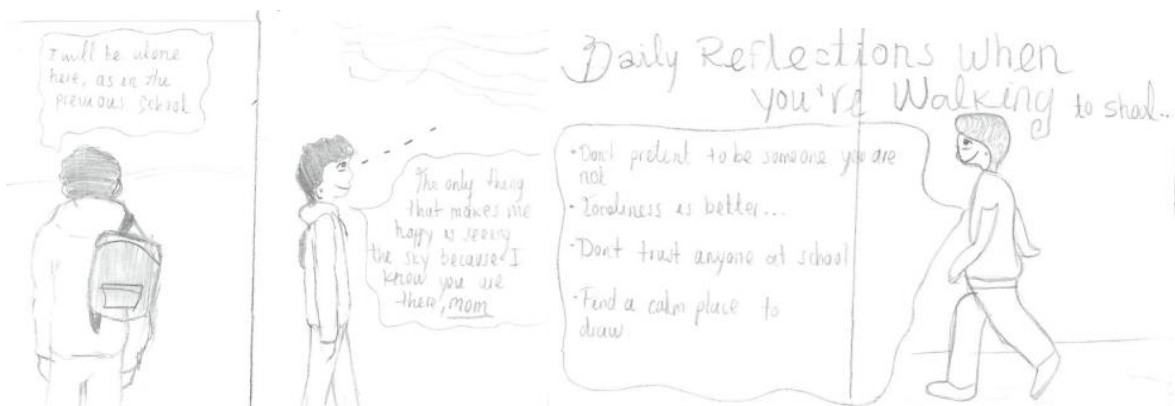 I will be alone
here, as in the
previous school
The only thing
that makes me
happy is seeing
the sky because I
know you are
there, mom
Daily Reflections When
you're Walking to shool..
• Don't pretent to be someone you are
not
• Loneliness is better...
• Don't trust anyone at school
• Find a calm place to
draw